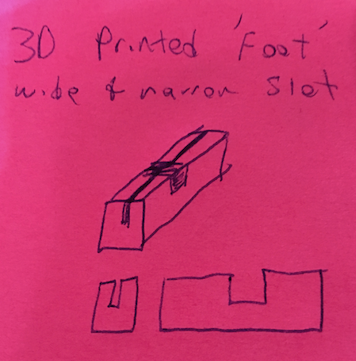 3D Printed 'Foot'
wide & narrow Slot